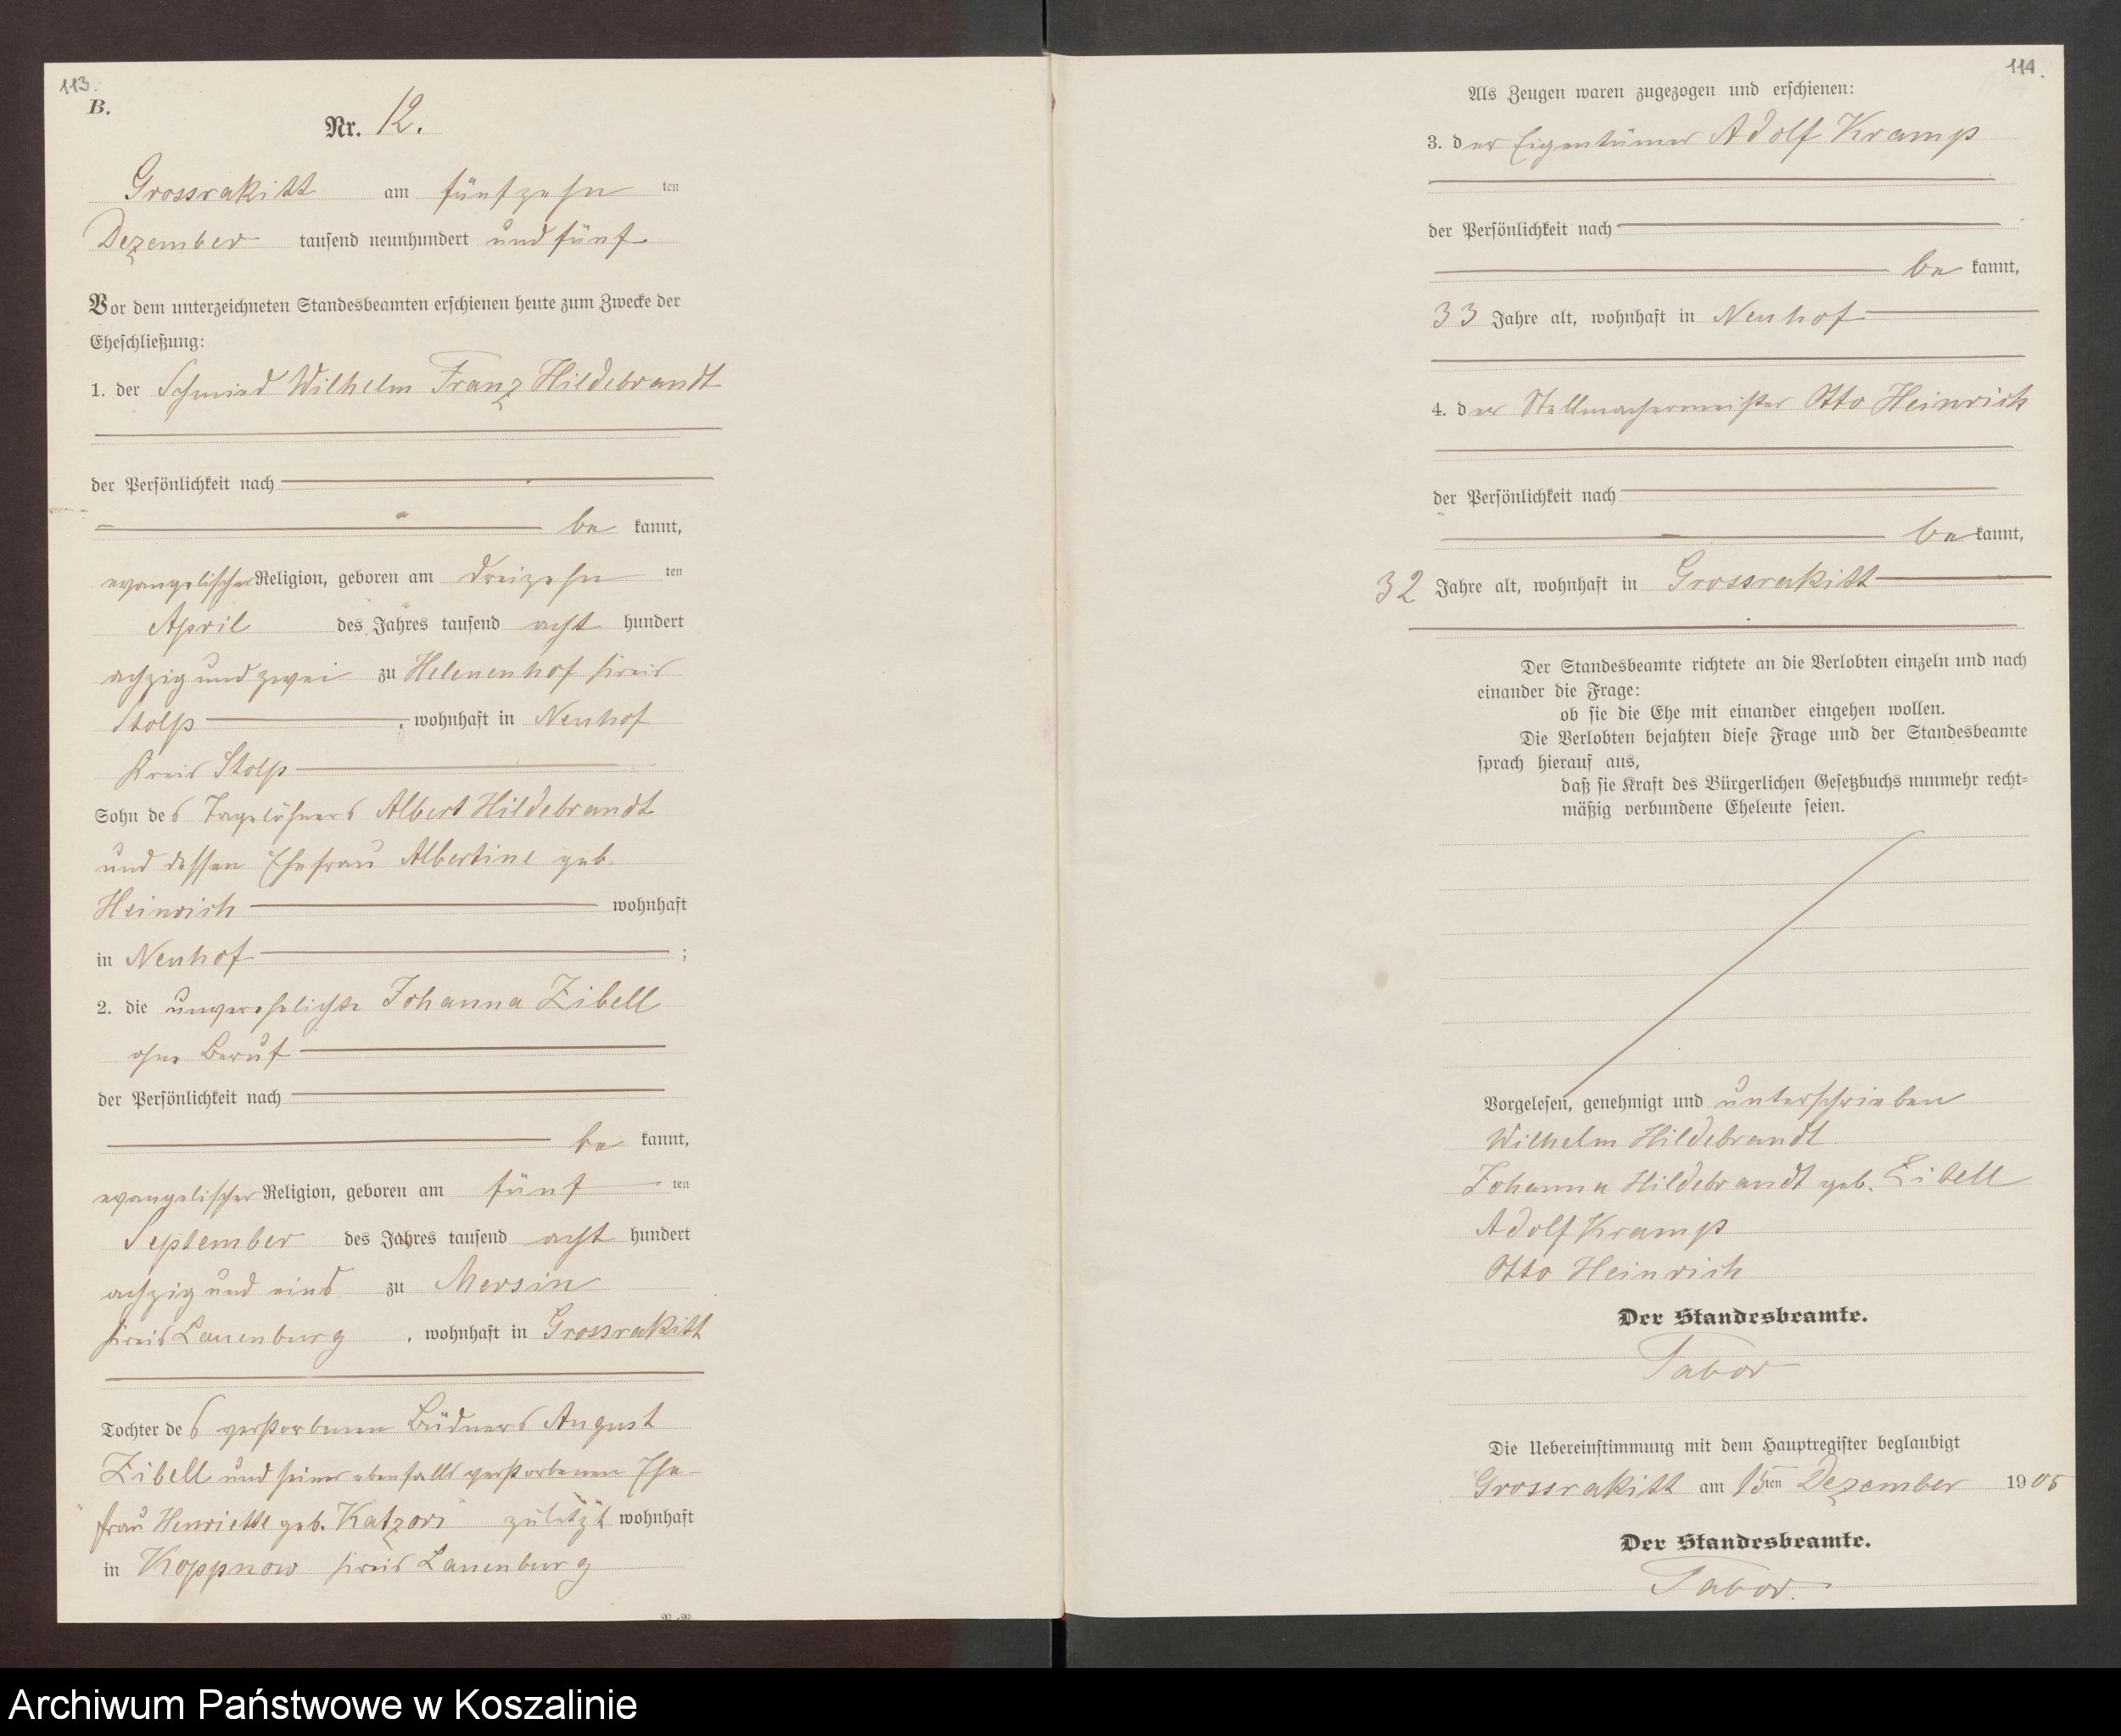 113.
B.
Nr. 12.
Grossrakitt am fünfzehn ten
Dezember tausend neunhundert und fünf
Vor dem unterzeichneten Standesbeamten erschienen heute zum Zwecke der
Eheschließung:
1. der Schmied Wilhelm Franz Hildebrandt
der Persönlichkeit nach
be kannt,
evangelischer Religion, geboren am dreizehn ten
April des Jahres tausend acht hundert
achzig und zwei zu Helenenhof Kreis
Stolp, wohnhaft in Neuhof
Kreis Stolp
Sohn des Tagelöhners Albert Hildebrandt
und dessen Ehefrau Albertine geb.
Heinrich wohnhaft
in Neuhof ;
2. die unverehelichte Johanna Zibell
ohne Beruf
der Persönlichkeit nach
be kannt,
evangelischer Religion, geboren am fünf ten
September des Jahres tausend acht hundert
achzig und eins zu Mersin
Kreis Lauenburg, wohnhaft in Grossrakitt
Tochter des verstorbenen Büdners August
Zibell und seiner ebenfalls verstorbenen Ehe-
frau Henriette geb. Katzori zuletzt wohnhaft
in Koppnow Kreis Lauenburg
114.
Als Zeugen waren zugezogen und erschienen:
3. der Eigentümer Adolf Kramp
der Persönlichkeit nach
be kannt,
33 Jahre alt, wohnhaft in Neuhof
4. der Stellmachermeister Otto Heinrich
der Persönlichkeit nach
be kannt,
32 Jahre alt, wohnhaft in Grossrakitt
Der Standesbeamte richtete an die Verlobten einzeln und nach
einander die Frage:
ob sie die Ehe mit einander eingehen wollen.
Die Verlobten bejahten diese Frage und der Standesbeamte
sprach hierauf aus,
daß sie Kraft des Bürgerlichen Gesetzbuchs nunmehr recht-
mäßig verbundene Eheleute seien.
Vorgelesen, genehmigt und unterschrieben
Wilhelm Hildebrandt
Johanna Hildebrandt geb. Zibell
Adolf Kramp
Otto Heinrich
Der Standesbeamte.
Tabor
Die Uebereinstimmung mit dem Hauptregister beglaubigt
Grossrakitt am 15ten Dezember 1905
Der Standesbeamte.
Tabor.
Archiwum Państwowe w Koszalinie